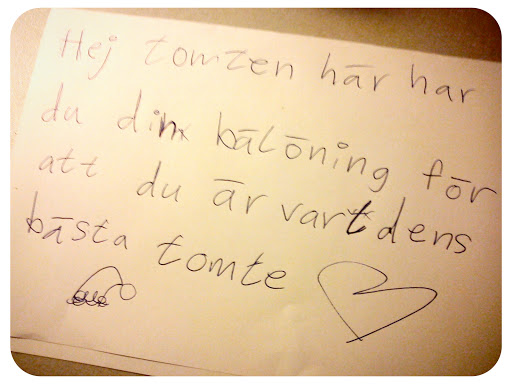 Hej tomten här har
du din bälöning för
att du är vartdens
bästa tomte